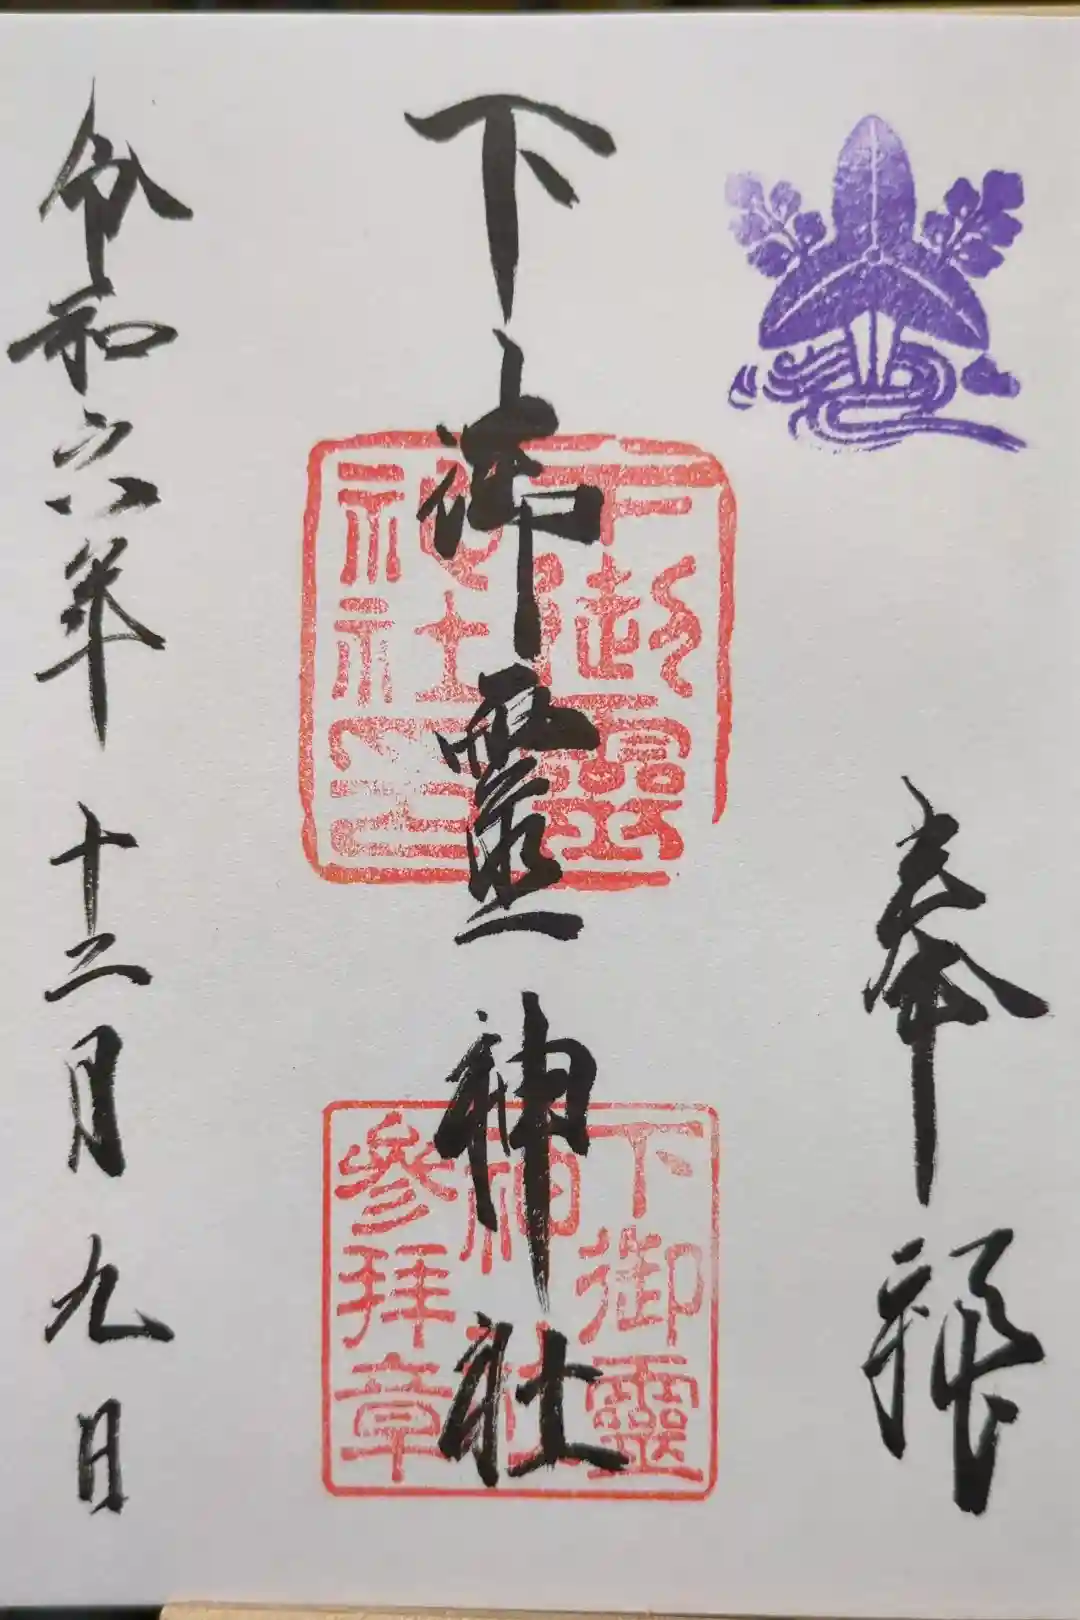 奉拝
下御靈神社
下御靈神社
下御靈神社参拝章
令和六年十二月九日